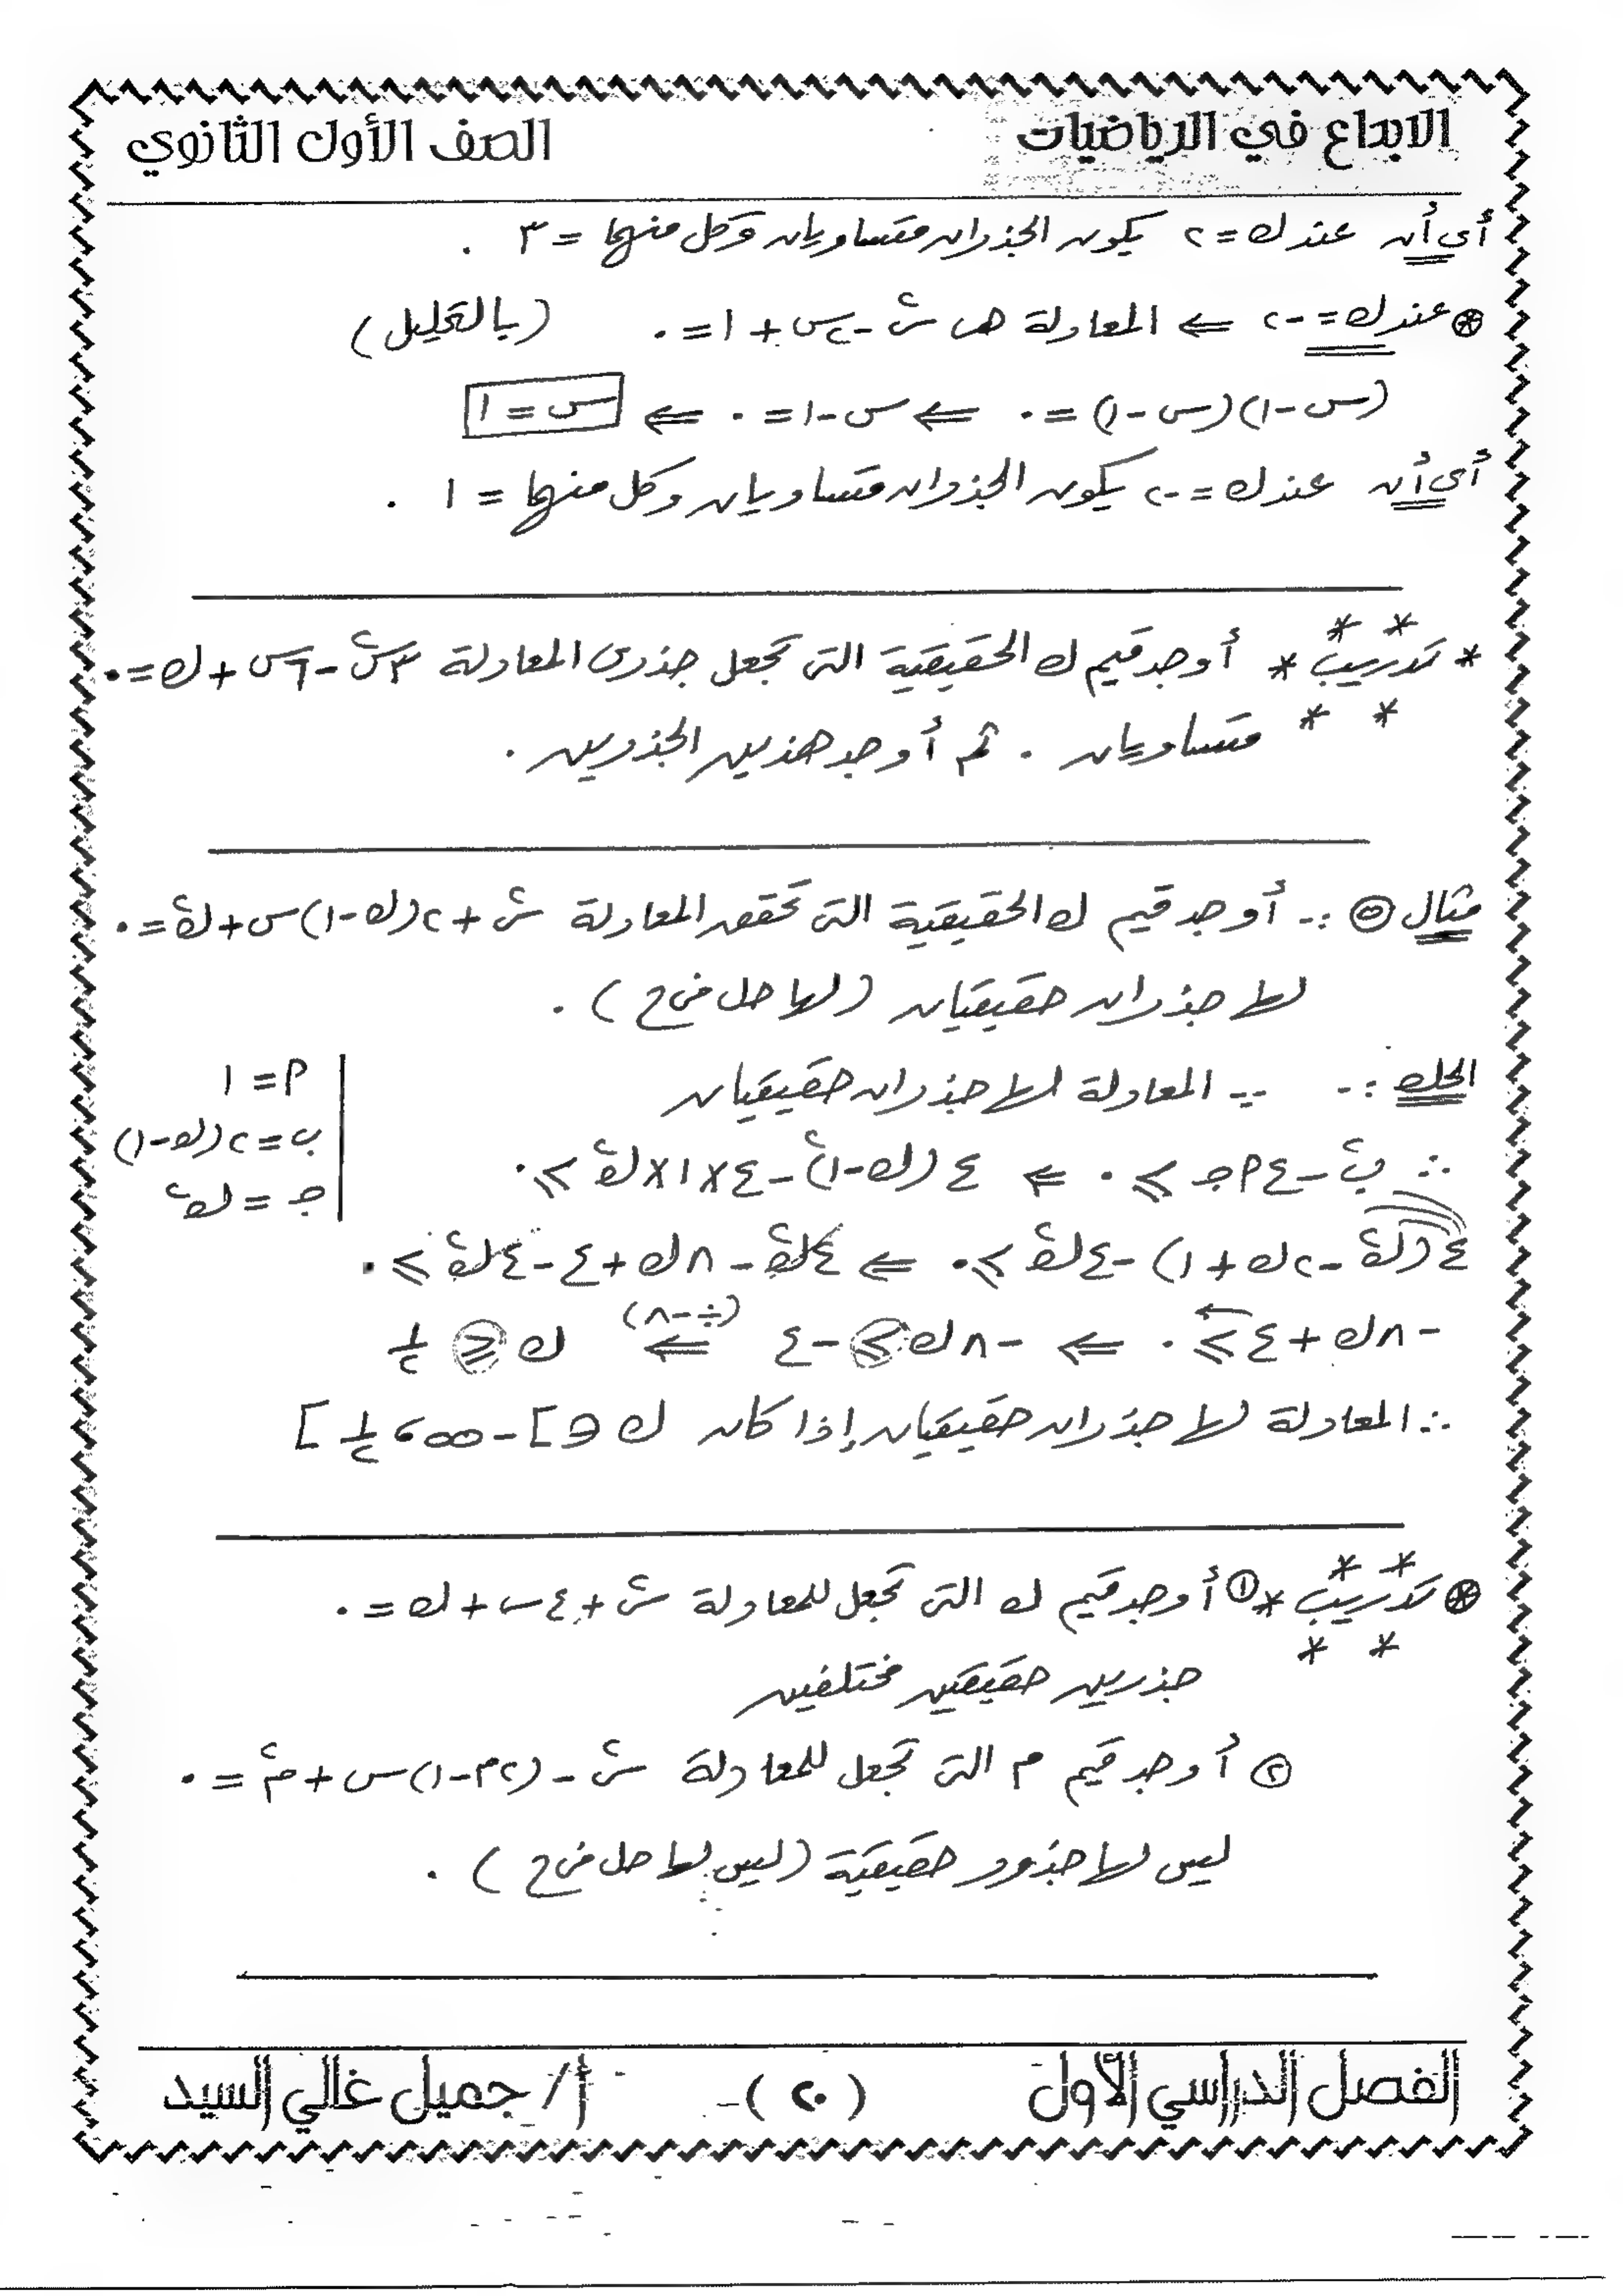 الابداع في الرياضيات الصف الأول الثانوي
أى أن عند ك = ٢ يكون الجذران متساويان وكل منهما = ٣ .
⊛ عند ك = -٢ ⇐ المعادلة هى س² - ٢س + ١ = ٠ (بالتحليل)
(س - ١)(س - ١) = ٠ ⇐ س - ١ = ٠ ⇐ س = ١
أى أن عند ك = -٢ يكون الجذران متساويان وكل منهما = ١ .
* تدريب * أوجد قيم ك الحقيقية التى تجعل جذرى المعادلة ٣س² - ٦س + ك = ٠
متساويان . ثم أوجد هذين الجذرين .
مثال ⑤ :- أوجد قيم ك الحقيقية التى تحقق المعادلة س² + ٢(ك - ١)س + ك² = ٠
لها جذران حقيقيان (لها حل فى ح) .
الحل :- ∵ المعادلة لها جذران حقيقيان
م = ١
ب = ٢(ك - ١)
جـ = ك²
∴ ب² - ٤م جـ ≥ ٠ ⇐ ٤(ك - ١)² - ٤×١×ك² ≥ ٠
٤(ك² - ٢ك + ١) - ٤ك² ≥ ٠ ⇐ ٤ك² - ٨ك + ٤ - ٤ك² ≥ ٠
- ٨ك + ٤ ≥ ٠ ⇐ - ٨ك ≥ - ٤ (÷ -٨) ⇐ ك ≤ ١/٢
∴ المعادلة لها جذران حقيقيان إذا كان ك ∈ ]-∞ ، ١/٢]
⊛ تدريب * ① أوجد قيم ك التى تجعل للمعادلة س² + ٤س + ك = ٠
جذرين حقيقين مختلفين
② أوجد قيم م التى تجعل للمعادلة س² - (٢م - ١)س + م² = ٠
ليس لها جذور حقيقية (ليس لها حل فى ح) .
الفصل الدراسي الأول (٢٠) أ/ جميل غالي السيد